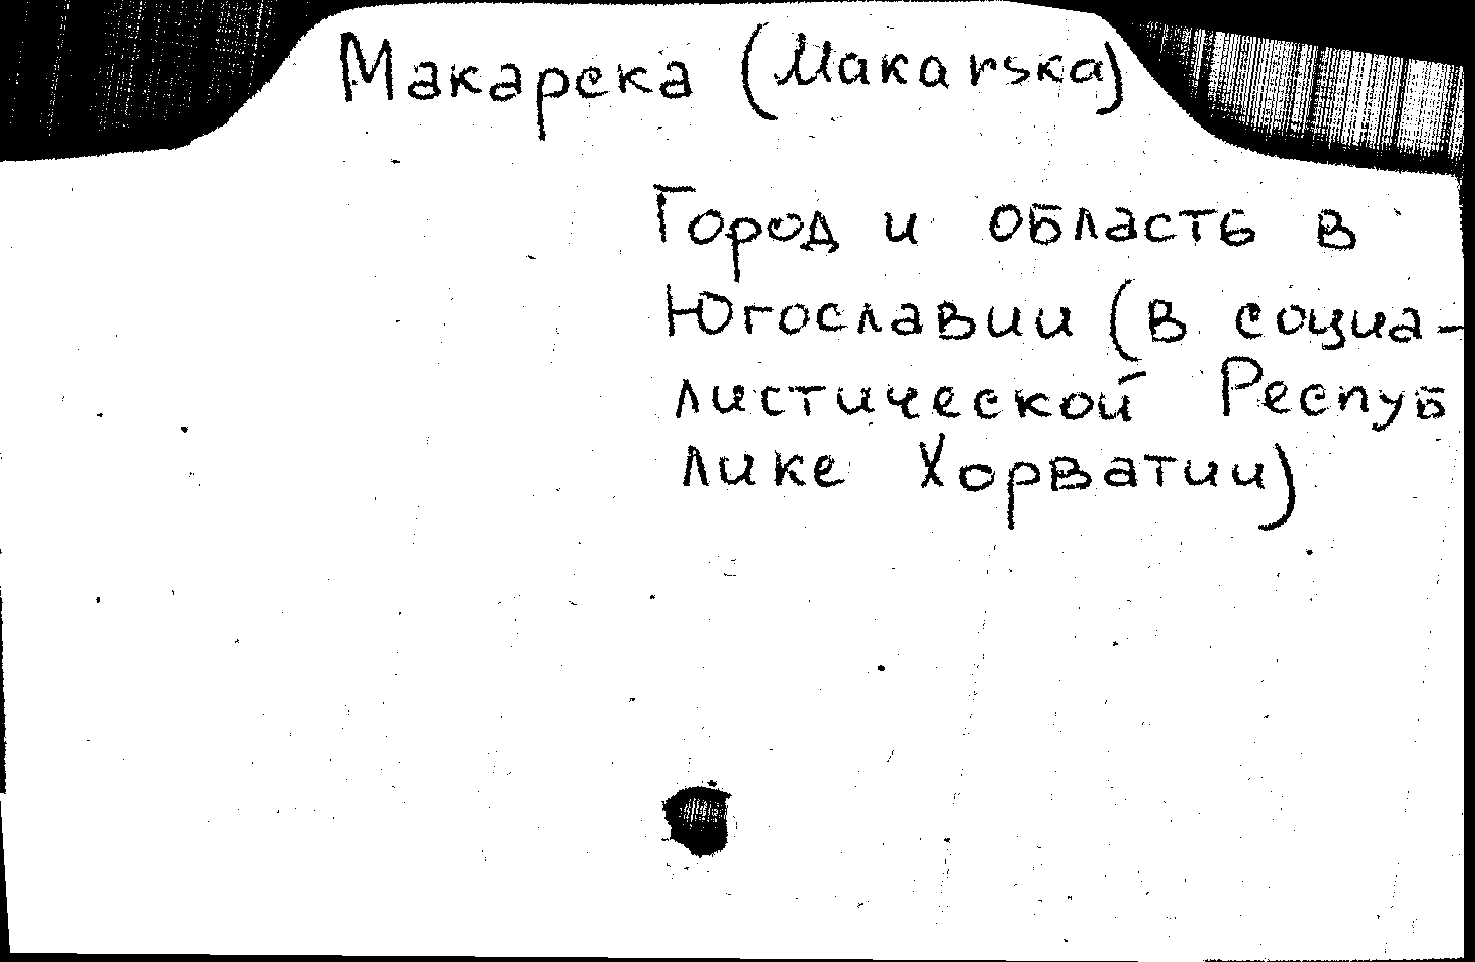 Макарска (Makarska)
Город и область в
Югославии (в социа-
листической Респуб
лике Хорватии)